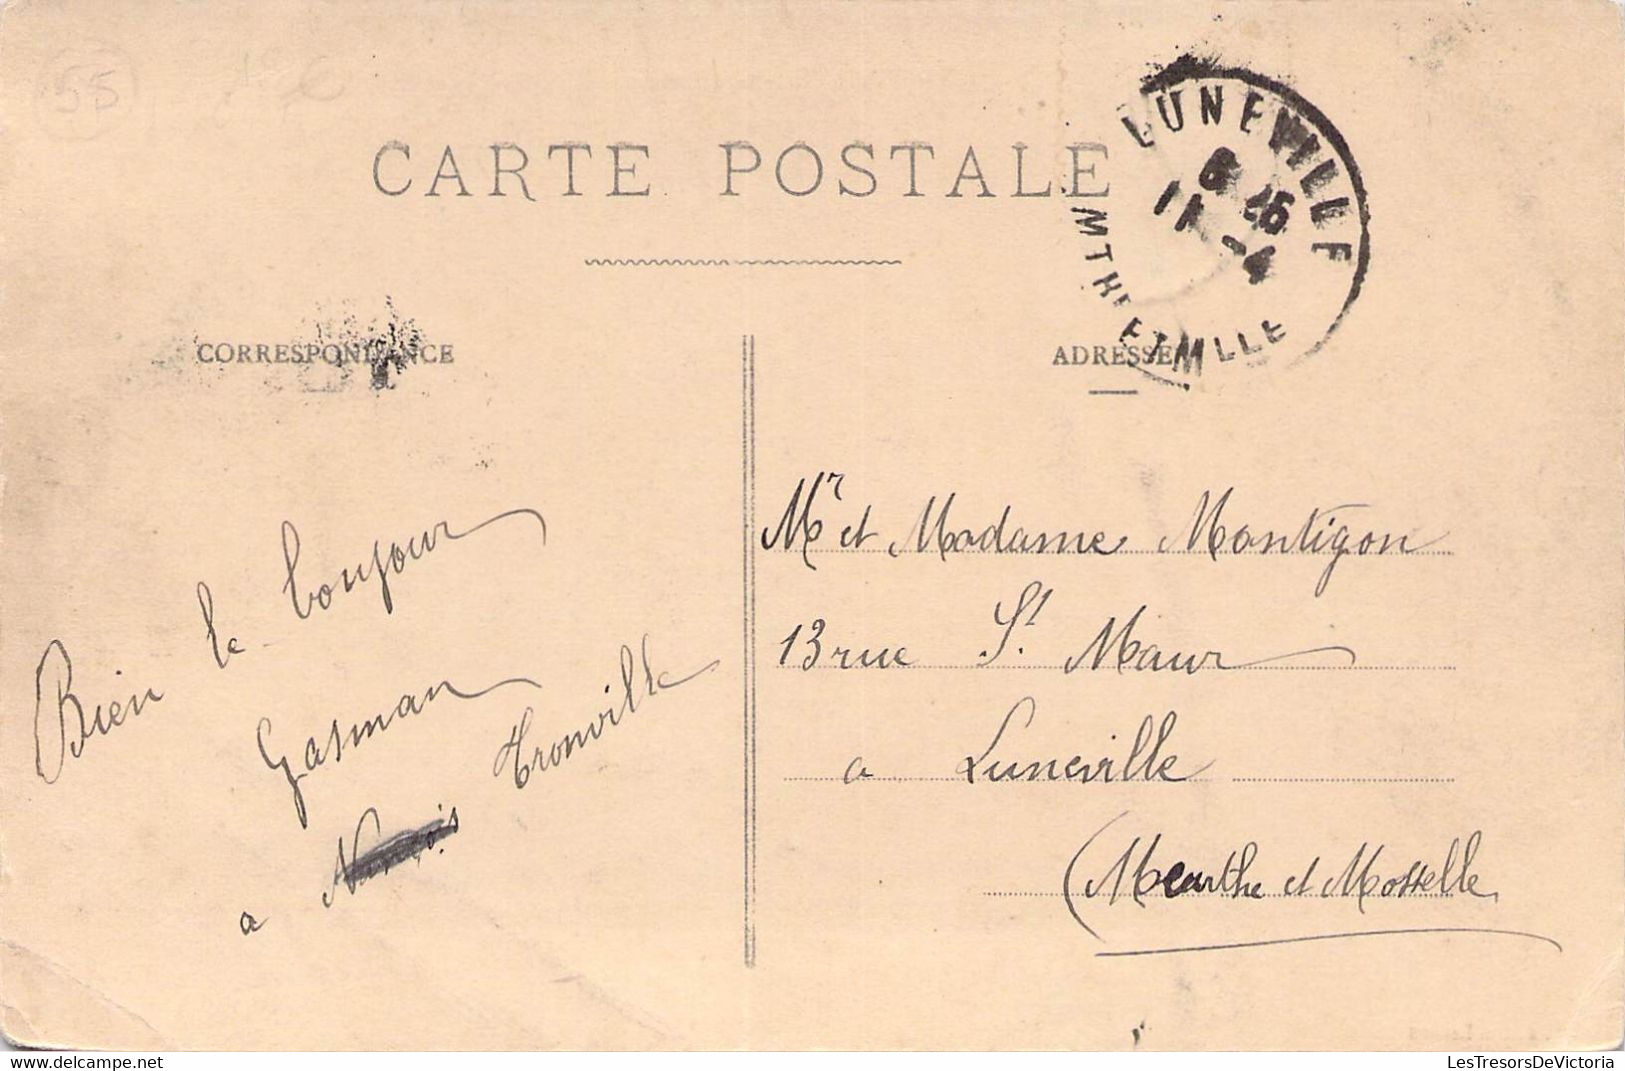 55
CARTE POSTALE
LUNEVILLE
6 25
11 -4
MTHE ET MLLE
CORRESPONDANCE
ADRESSE
Bien le bonjour
Gasman
a Tronville
Mr et Madame Montigon
13 rue St. Maur
a Luneville
(Meurthe et Mosselle
LesTresorsDeVictoria